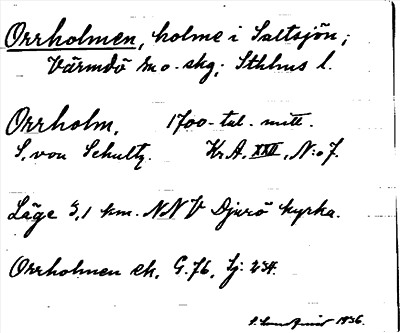 Orrholmen, holme i Saltsjön,
Värmdö m. o. skg; Sthlms l.
Orrholm, 1700-tal. mitt.
S. von Schultz. Kr.A. XXII, N:o 7.
Läge 3,1 km. NNV Djurö kyrka.
Orrholmen ek. G.76, Sj: 234.
1936.